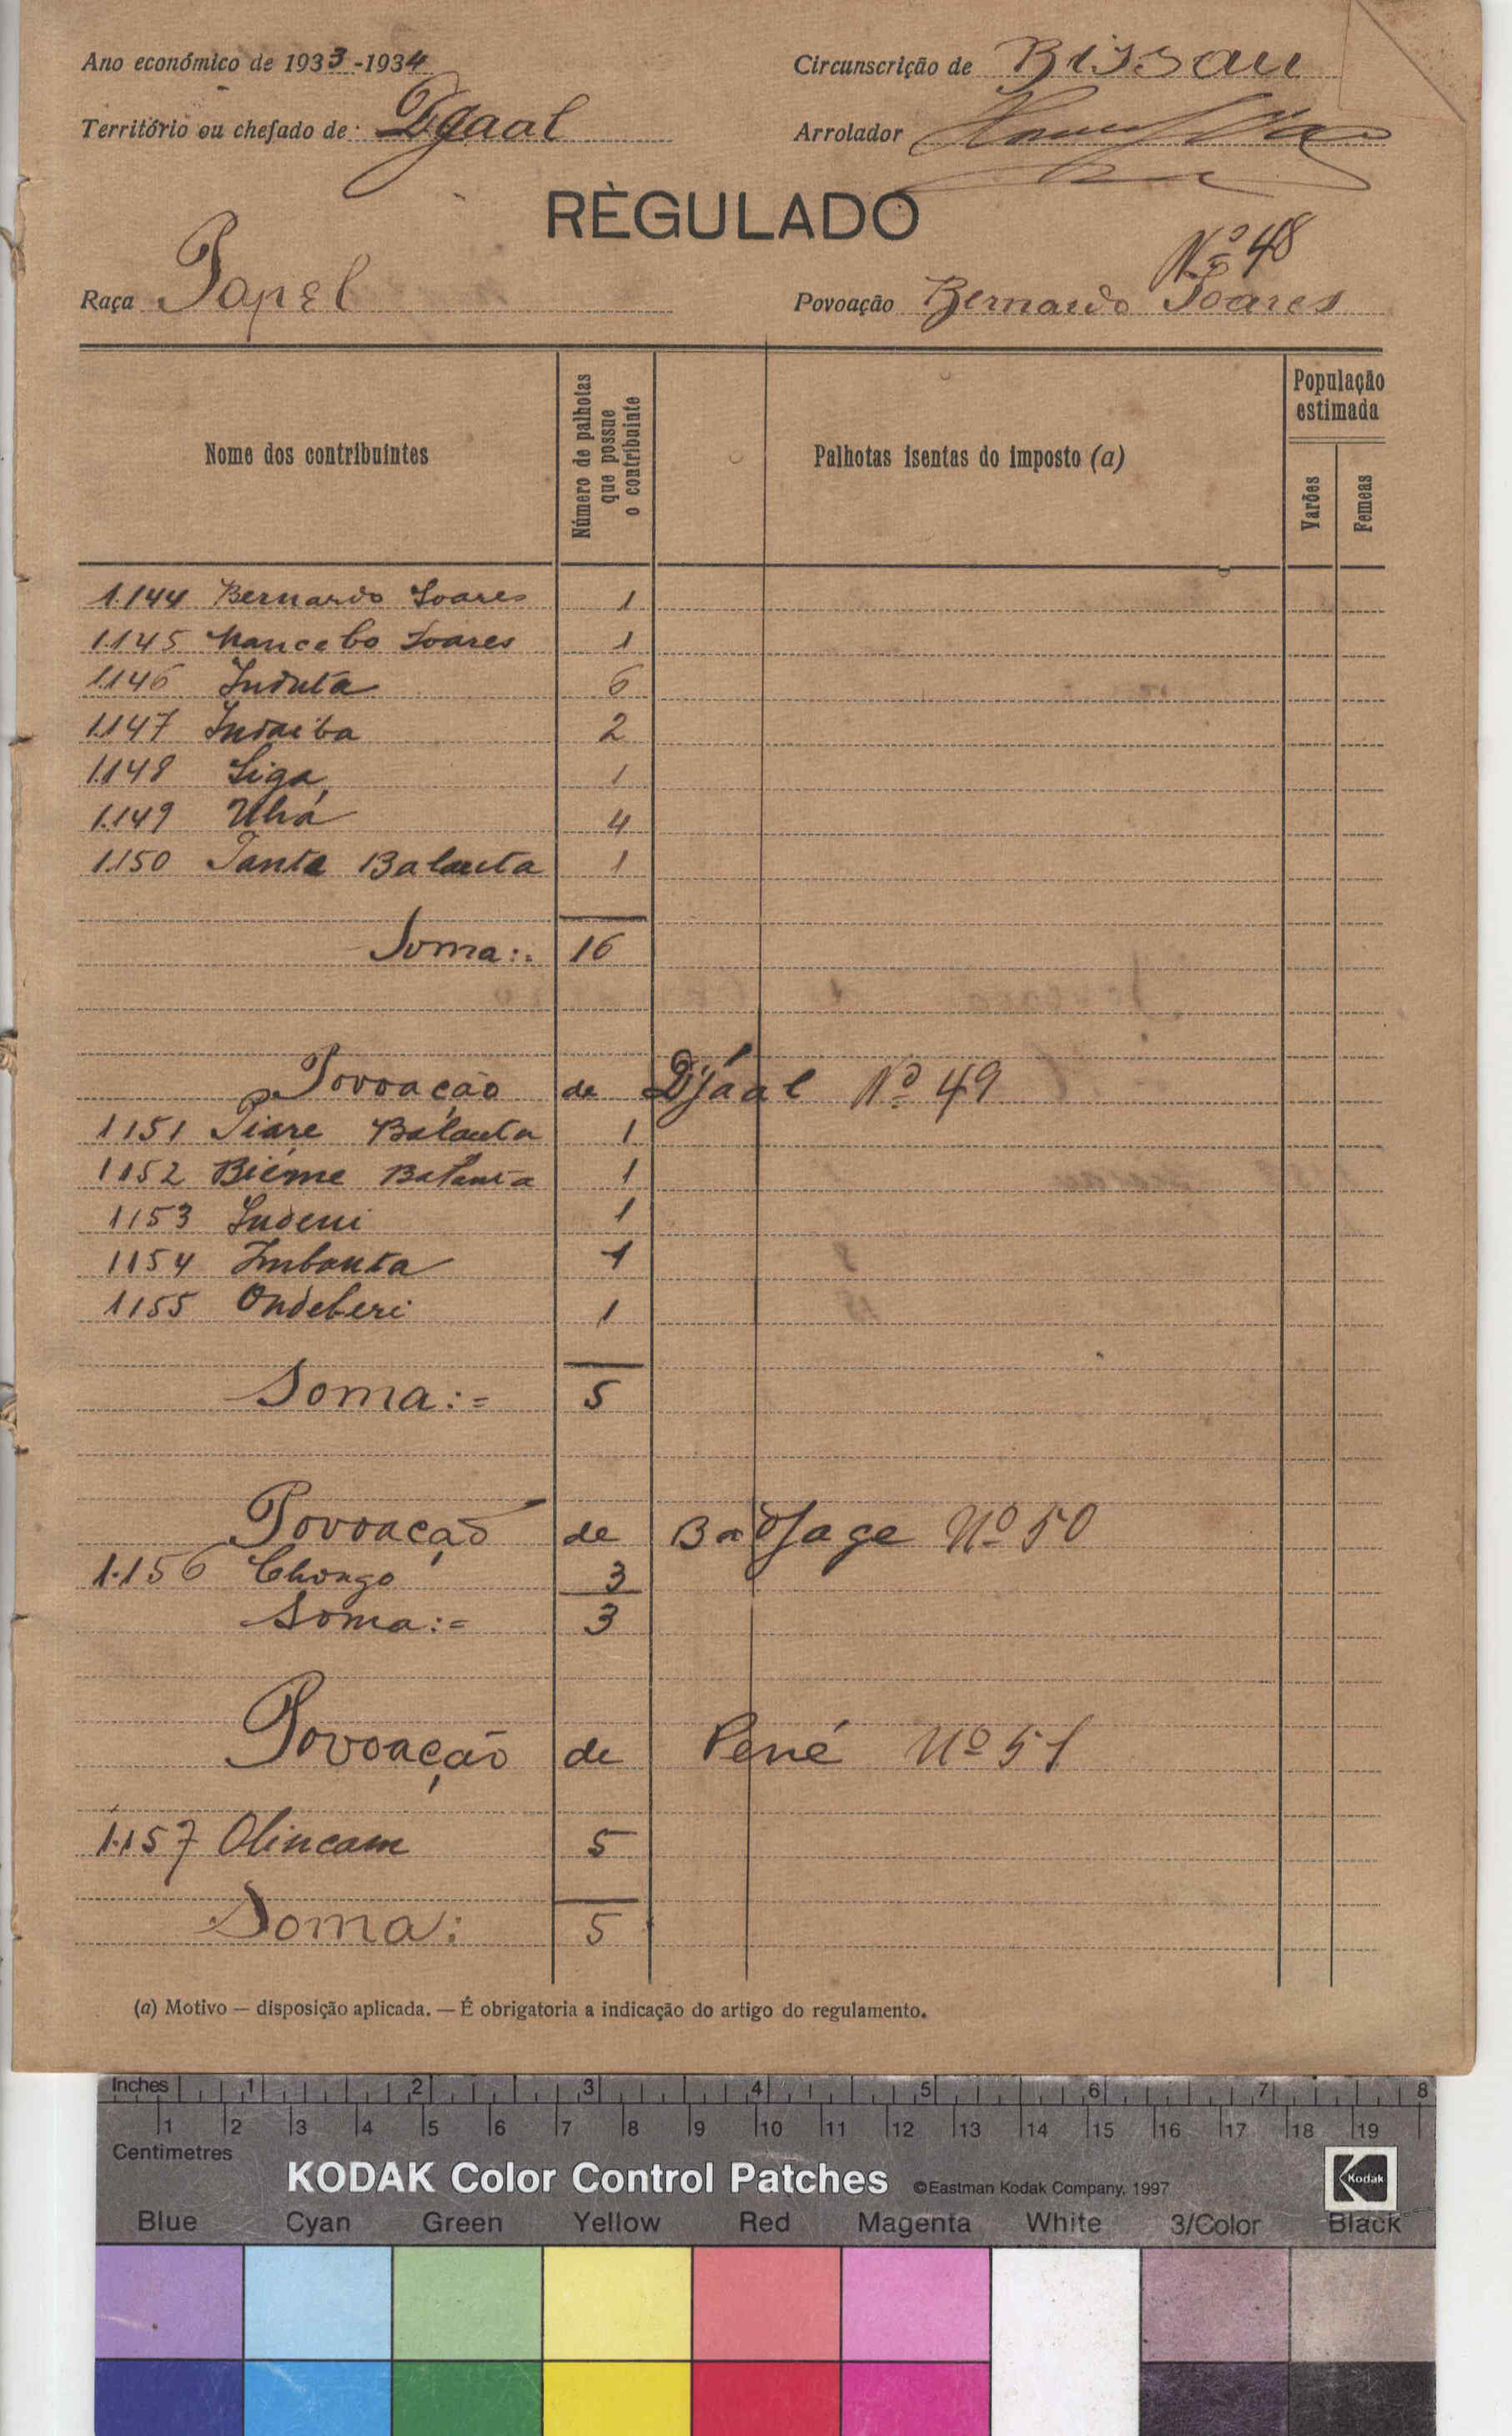 Ano económico de 1933-1934
Circunscrição de Bissau
Território ou chefado de: Djaal
Arrolador
RÈGULADO
Nº 48
Raça Papel
Povoação Bernardo Soares
Nome dos contribuintes
Número de palhotas que possue o contribuinte
Palhotas isentas do imposto (a)
População estimada
Varões
Femeas
1.144 Bernardo Soares 1
1.145 Mancebo Soares 1
1.146 Induta 6
1.147 Indaiba 2
1.148 Siga 1
1.149 Uhá 4
1.150 Tanta Balanta 1
Soma:. 16
Povoação de Djáal Nº 49
1151 Piare Balanta 1
1152 Biéme Balanta 1
1153 Indeni 1
1154 Imbanta 1
1155 Ondeberi 1
Soma:= 5
Povoação de Badjage Nº 50
1.156 Chongo 3
Soma:= 3
Povoação de Pené Nº 51
1.157 Olincam 5
Soma: 5
(a) Motivo — disposição aplicada. — É obrigatoria a indicação do artigo do regulamento.
Inches 1 2 3 4 5 6 7 8
1 2 3 4 5 6 7 8 9 10 11 12 13 14 15 16 17 18 19
Centimetres
KODAK Color Control Patches ©Eastman Kodak Company, 1997 Kodak
Blue Cyan Green Yellow Red Magenta White 3/Color Black